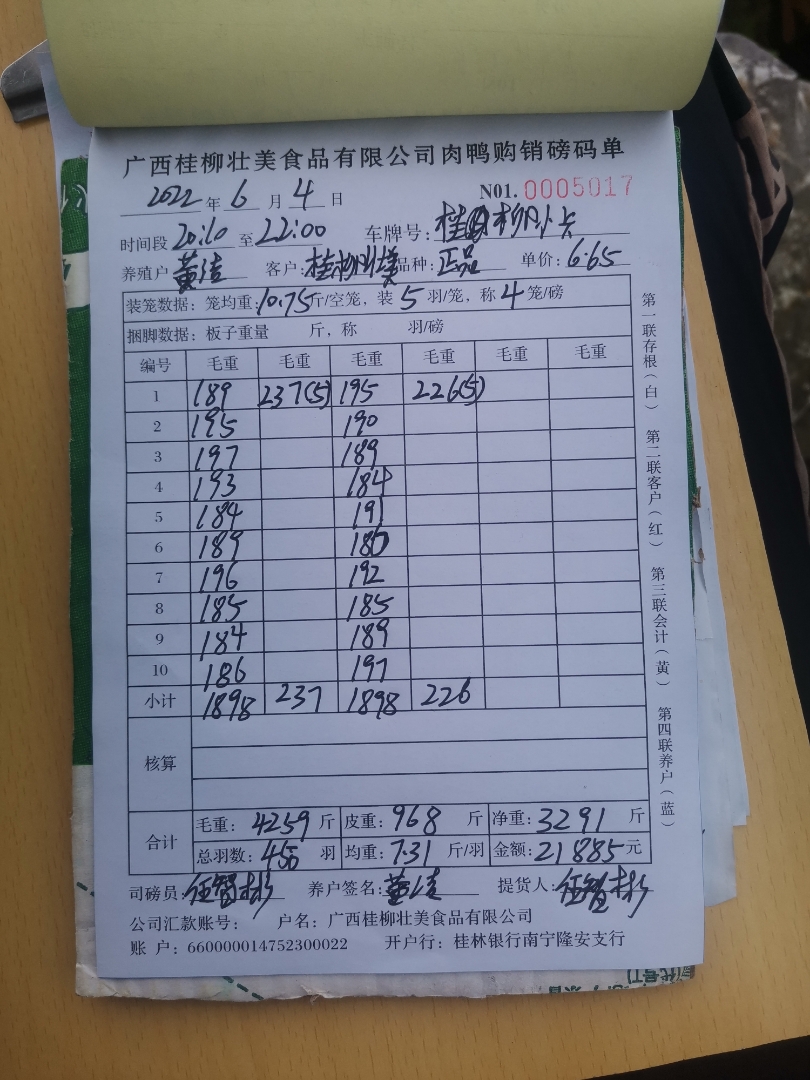 广西桂柳壮美食品有限公司肉鸭购销磅码单
2022 年 6 月 4 日 N01. 0005017
时间段 20:10 至 22:00 车牌号:
养殖户 黄洁 客户: 桂柳壮美 品种: 正品 单价: 6.65
装笼数据: 笼均重: 10.75 斤/空笼, 装 5 羽/笼, 称 4 笼/磅
捆脚数据: 板子重量 斤, 称 羽/磅
编号 毛重 毛重 毛重 毛重 毛重 毛重
1 189 237(5) 195 226(5)
2 195 190
3 197 189
4 193 184
5 184 191
6 189 186
7 196 192
8 185 185
9 184 189
10 186 197
小计 1898 237 1898 226
核算
合计 毛重: 4259 斤 皮重: 968 斤 净重: 3291 斤
总羽数: 450 羽 均重: 7.31 斤/羽 金额: 21885 元
司磅员: 养户签名: 黄洁 提货人:
公司汇款账号: 户名: 广西桂柳壮美食品有限公司
账 户: 660000014752300022 开户行: 桂林银行南宁隆安支行
第一联存根(白) 第二联客户(红) 第三联会计(黄) 第四联养户(蓝)